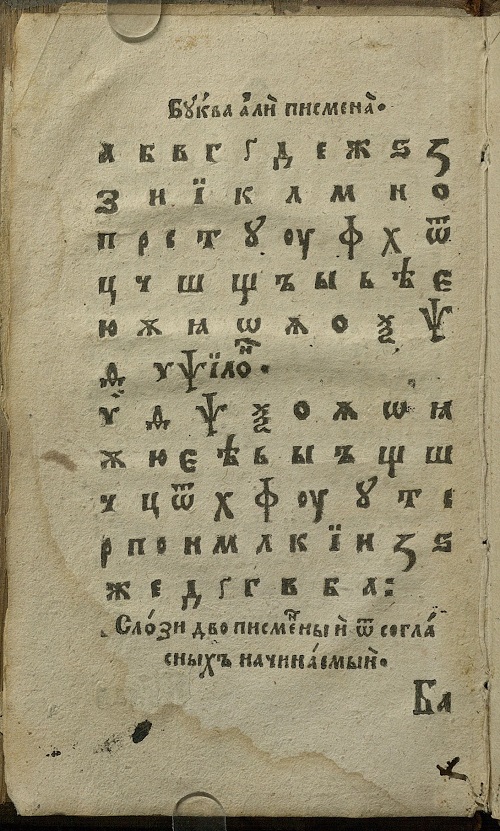 Бꙋ́ква а҆́лѝ писмена̀.
а б в г ґ д е ж ѕ ꙁ
з и ї к л м н о
п р с т ꙋ оу ф х ѿ
ц ч ш щ ъ ы ь ѣ є
ю ѫ ꙗ ѡ ѫ о ѯ ѱ
ѳ ѵ ѱїло́н.
ѵ ѳ ѱ ѯ о ѫ ѡ ꙗ
ѫ ю є ѣ ь ы ъ щ ш
ч ц ѿ х ф оу ꙋ т с
р п о н м л к ї и ꙁ ѕ
ж е д ґ г в б а:
Сло́зи двописменны и҆ ѿ согла́
сныхъ начина́емыи҆.
Ба